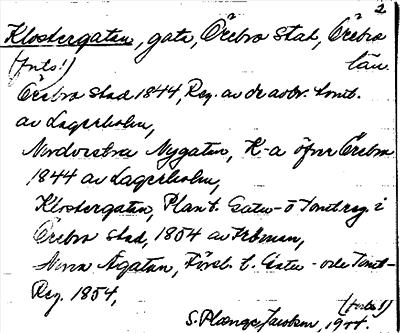 2
Klostergatan, gata, Örebro stad, Örebro
(forts!) län.
Örebro stad 1844, Reg. av de adtr. tomt.
av Lagerholm,
Nordvestra Nygatan, K-a öfver Örebro
1844 av Lagerholm,
Klostergatan, Plan t. Gatu- o Tomtreg. i
Örebro stad, 1854 av
Norra Ågatan, Försl. t. Gatu- och Tomt-
Reg. 1854,
(forts!)
S. Plænge Jacobson, 1944.